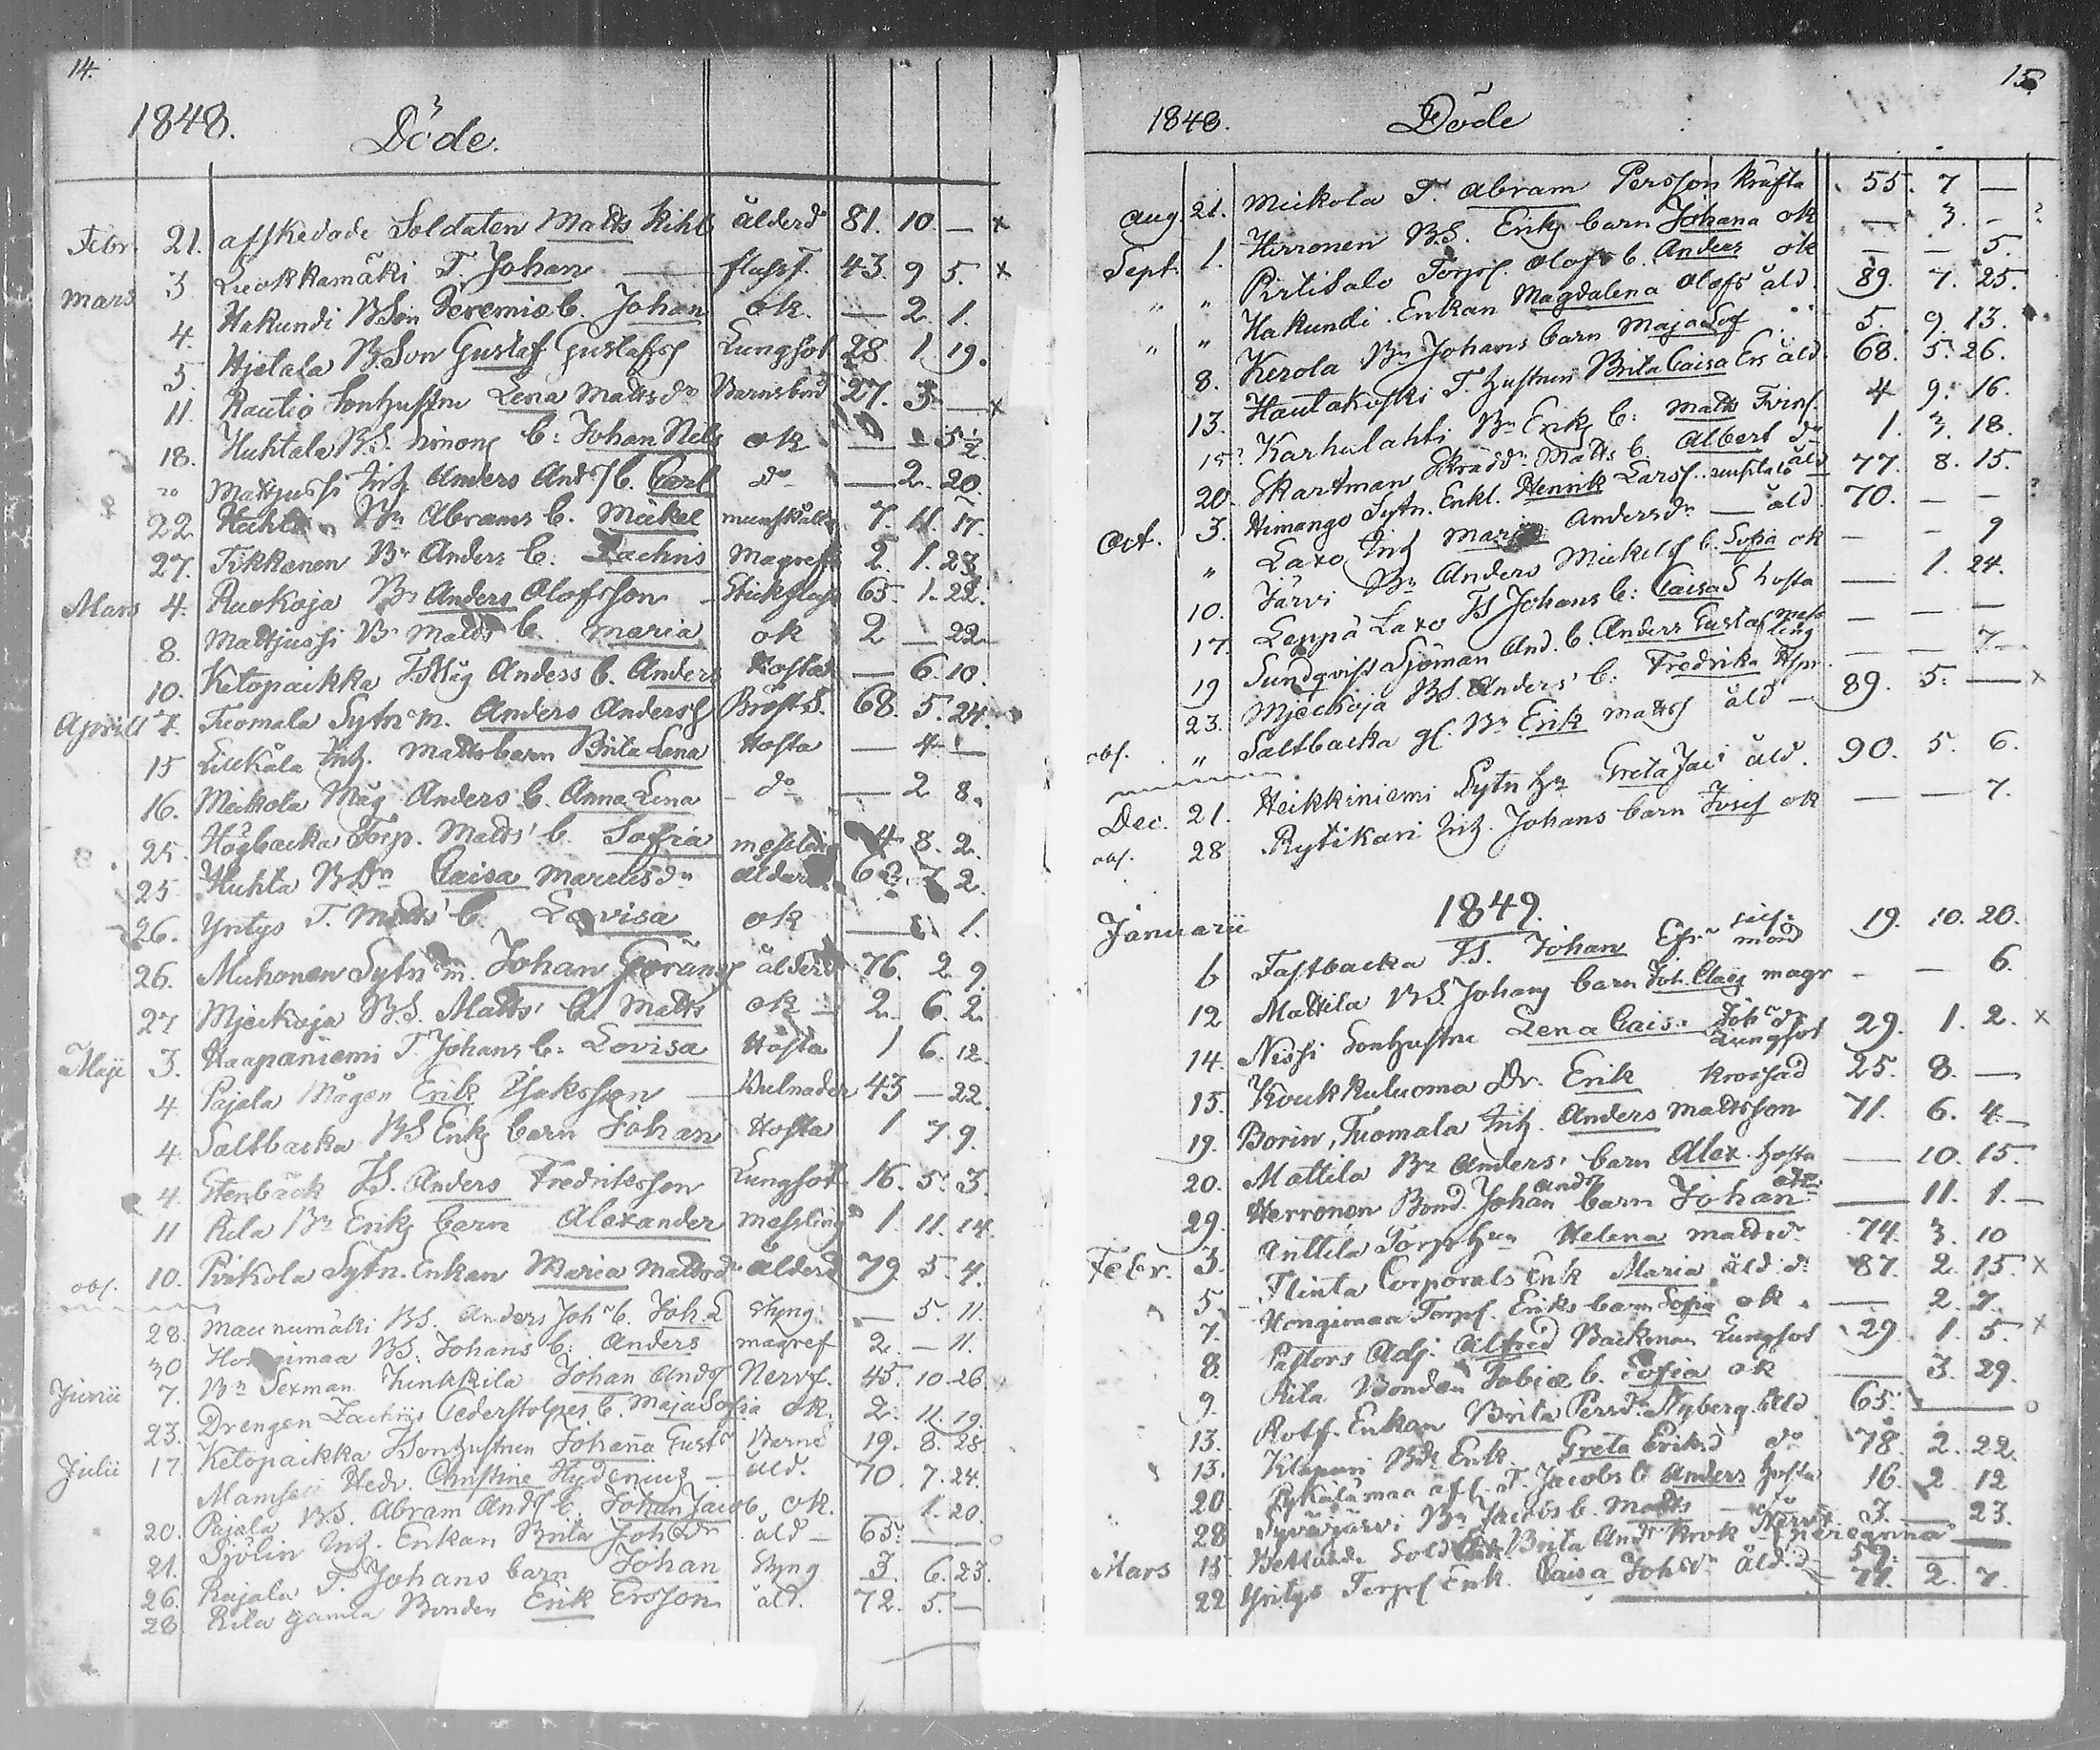 14.
1848. Döde.
Febr. 21. afskedade Soldaten Matts Kihl ålderd 81. 10. — x
Mars 3 Luokkamäki T. Johan — flussf. 43. 9 5. x
4. Hakundi BSon Jeremias b. Johan ok. — 2. 1.
5. Hjelala B.Son Gustaf Gustafss Lungsot 28 1 19.
11. Rautio Sonhustru Lena Mattsdr Barnsbörd 27. 3 — x
18. Huhtala B.S. Simons b: Johan Nels ok — — 5½
20 Mattjussi Inh Anders Ands b. Carl do — 2. 20.
22. Huhta Bn Abrams b. Mickel 7. 11. 17.
27. Tikkanen Bn Anders b: Zachris Magref 2. 1. 23
Mars 4. Ruokoja Bn Anders Olofsson Stickfluss 65 1. 22.
8. Mattjussi Bn Matts b. Maria ok 2 — 22
10. Ketopaikka Måg Anders b. Anders Hosta — 6. 10.
Aprill 7. Tuomala Sytn.m. Anders Anderss Bröst S. 68. 5. 24.
15 Luckala Inh. Matts barn Brita Lena Hosta — 4 —
16. Meikola Måg Anders b. Anna Lena do — 2 8.
25. Högbacka Torp. Matts b. Sofia messling 4 8. 2.
25. Huhta Caisa Marcusdr ålderd 2.
26. Yritys T. Matts b. Lovisa ok — 1.
26. Muhonen Sytn.m. Johan Göranss ålderd 76. 2. 9.
27 Mjeckoja B.S. Matts b. Matts ok 2. 6. 2
Maji 3. Haapaniemi T. Johans b: Lovisa Hosta 1 6. 12.
4. Pajala Mågen Erik Isaksson — Bulnader 43 — 22.
4. Saltbacka BS Eriks barn Johan Hosta 1 7. 9.
4. Stenbäck T.S. Anders Fredriksson Lungsot 16. 5. 3.
11 Rila Bn Eriks barn Alexander messling 1. 11. 14.
obs. 10. Pirkola Sytn. Enkan Maria Mattsdr ålderd 79. 5. 4.
28. Maunumäki BS. Anders Johs b. Joh. E styng — 5. 11.
30 Hongimaa BS. Johans b: Anders magref 2. — 11.
Junii 7. Bn Sexman Junkkila Johan Ands Nervf. 45. 10. 26
23. Drengen Zachris Cederstolpes b. Maja Sofia ok. 2. 11. 19.
Julii 17. Ketopaikka Sonhustrun Johanna Gustd Barns 19. 8. 28.
Mamsell Hedv. Christine Hydenius — åld. 70. 7. 24.
20. Pajala BS. Abram Ands b. Johan Jacob ok. — 1. 20.
21. Sjölin Inh. Enkan Brita Johsdr åld — 65. — — o
26. Rajala T. Johans barn Johan Styng 3. 6. 23.
28. Rila gamla Bonden Erik Ersson åld. 72. 5. —
15
1848. Döde
Aug. 21. Meikola T. Abram Persson kräfta 55. 7 —
Sept. 1. Herronen B.S. Eriks barn Johana ok — 3. - ?
" " Pirtisalo Torps. Olofs b. Anders ok — — 5.
" " Hakundi Enkan Magdalena Olofs åld. 89. 7. 25.
8. Kerola Bn Johans barn Maja Sof " 5. 9. 13.
13. Hautakoski T. hustrun Brita Caisa Ers åld. 68. 5. 26.
15? Karhulahti Bn Eriks b: Matts 4 9. 16.
20. Skartman Skrädd. Matts b. Albert do 1. 3. 18.
Oct. 3. Himango Sytn. Enkl. Henrik Larss åld 77. 8. 15.
" Laxo Inh Maria Andersdr — åld 70. — — ?
10. Järvi Bn Anders Mickels b. Sofia ok — - 9
17. Leppä Laxo TS Johans b: Caisa S hosta — 1. 24.
19 Sundqvist Sjöman And. b. Anders Gustaf messling — — —
23. Mjeckoja BS Anders b: Fredrika — — 7
obs. " Saltbacka gl. Bn Erik Matts åld — 89. 5. — x
Dec. 21. Heikkiniemi Sytn hn Greta Jac åld. 90. 5. 6.
obs. 28 Rytikari Inh. Johans barn Josef ok — — 7.
1849.
Januarii 6 Tastbacka T.S. Johan Ers 19. 10. 20.
12 Mattila B.S. Johans barn Joh. Claes magr - — 6.
14. Nissi Sonhustru Lena Cais. Johsdr Lungsot 29. 1. 2. x
15. Koukkuluoma Dr. Erik krossad 25. 8. —
19. Borin, Tuomala Inh. Anders Mattsson 71. 6. 4.
20. Mattila Bn Anders barn Alex. hosta — 10. 15.
29. Herronen Bond. Johan Ands barn Johan — 11. 1.
Febr. 3. Anttila Torps hn Helena Mattsdr 74. 3. 10
5 Flinta Corporals Enk Maria åld. 87. 2. 15. x
7. Hongimaa Torps. Eriks barn Sofia ok — 2. 7.
8. Pastors Adj. Alfred Backman Lungsot 29. 1. 5. x
9. Rila Bonden Tobias b. Sofia ok — 3. 29.
13. Rotf. Enkan Brita Persdr Nyberg. åld 65. — o
13. Klapuri Enk. Greta Eriksd do 78. 2. 22
20. Pykälämaa aff. T. Jacobs b Anders hosta 16. 2 12
28 Syväjärvi Bn Jacobs b. Matts — 3. — 23.
Mars 15. Sold Enk Brita And Krok 59. —
22 Yritys Torps Enk. Caisa Johsdr åld. 77. 2. 7.